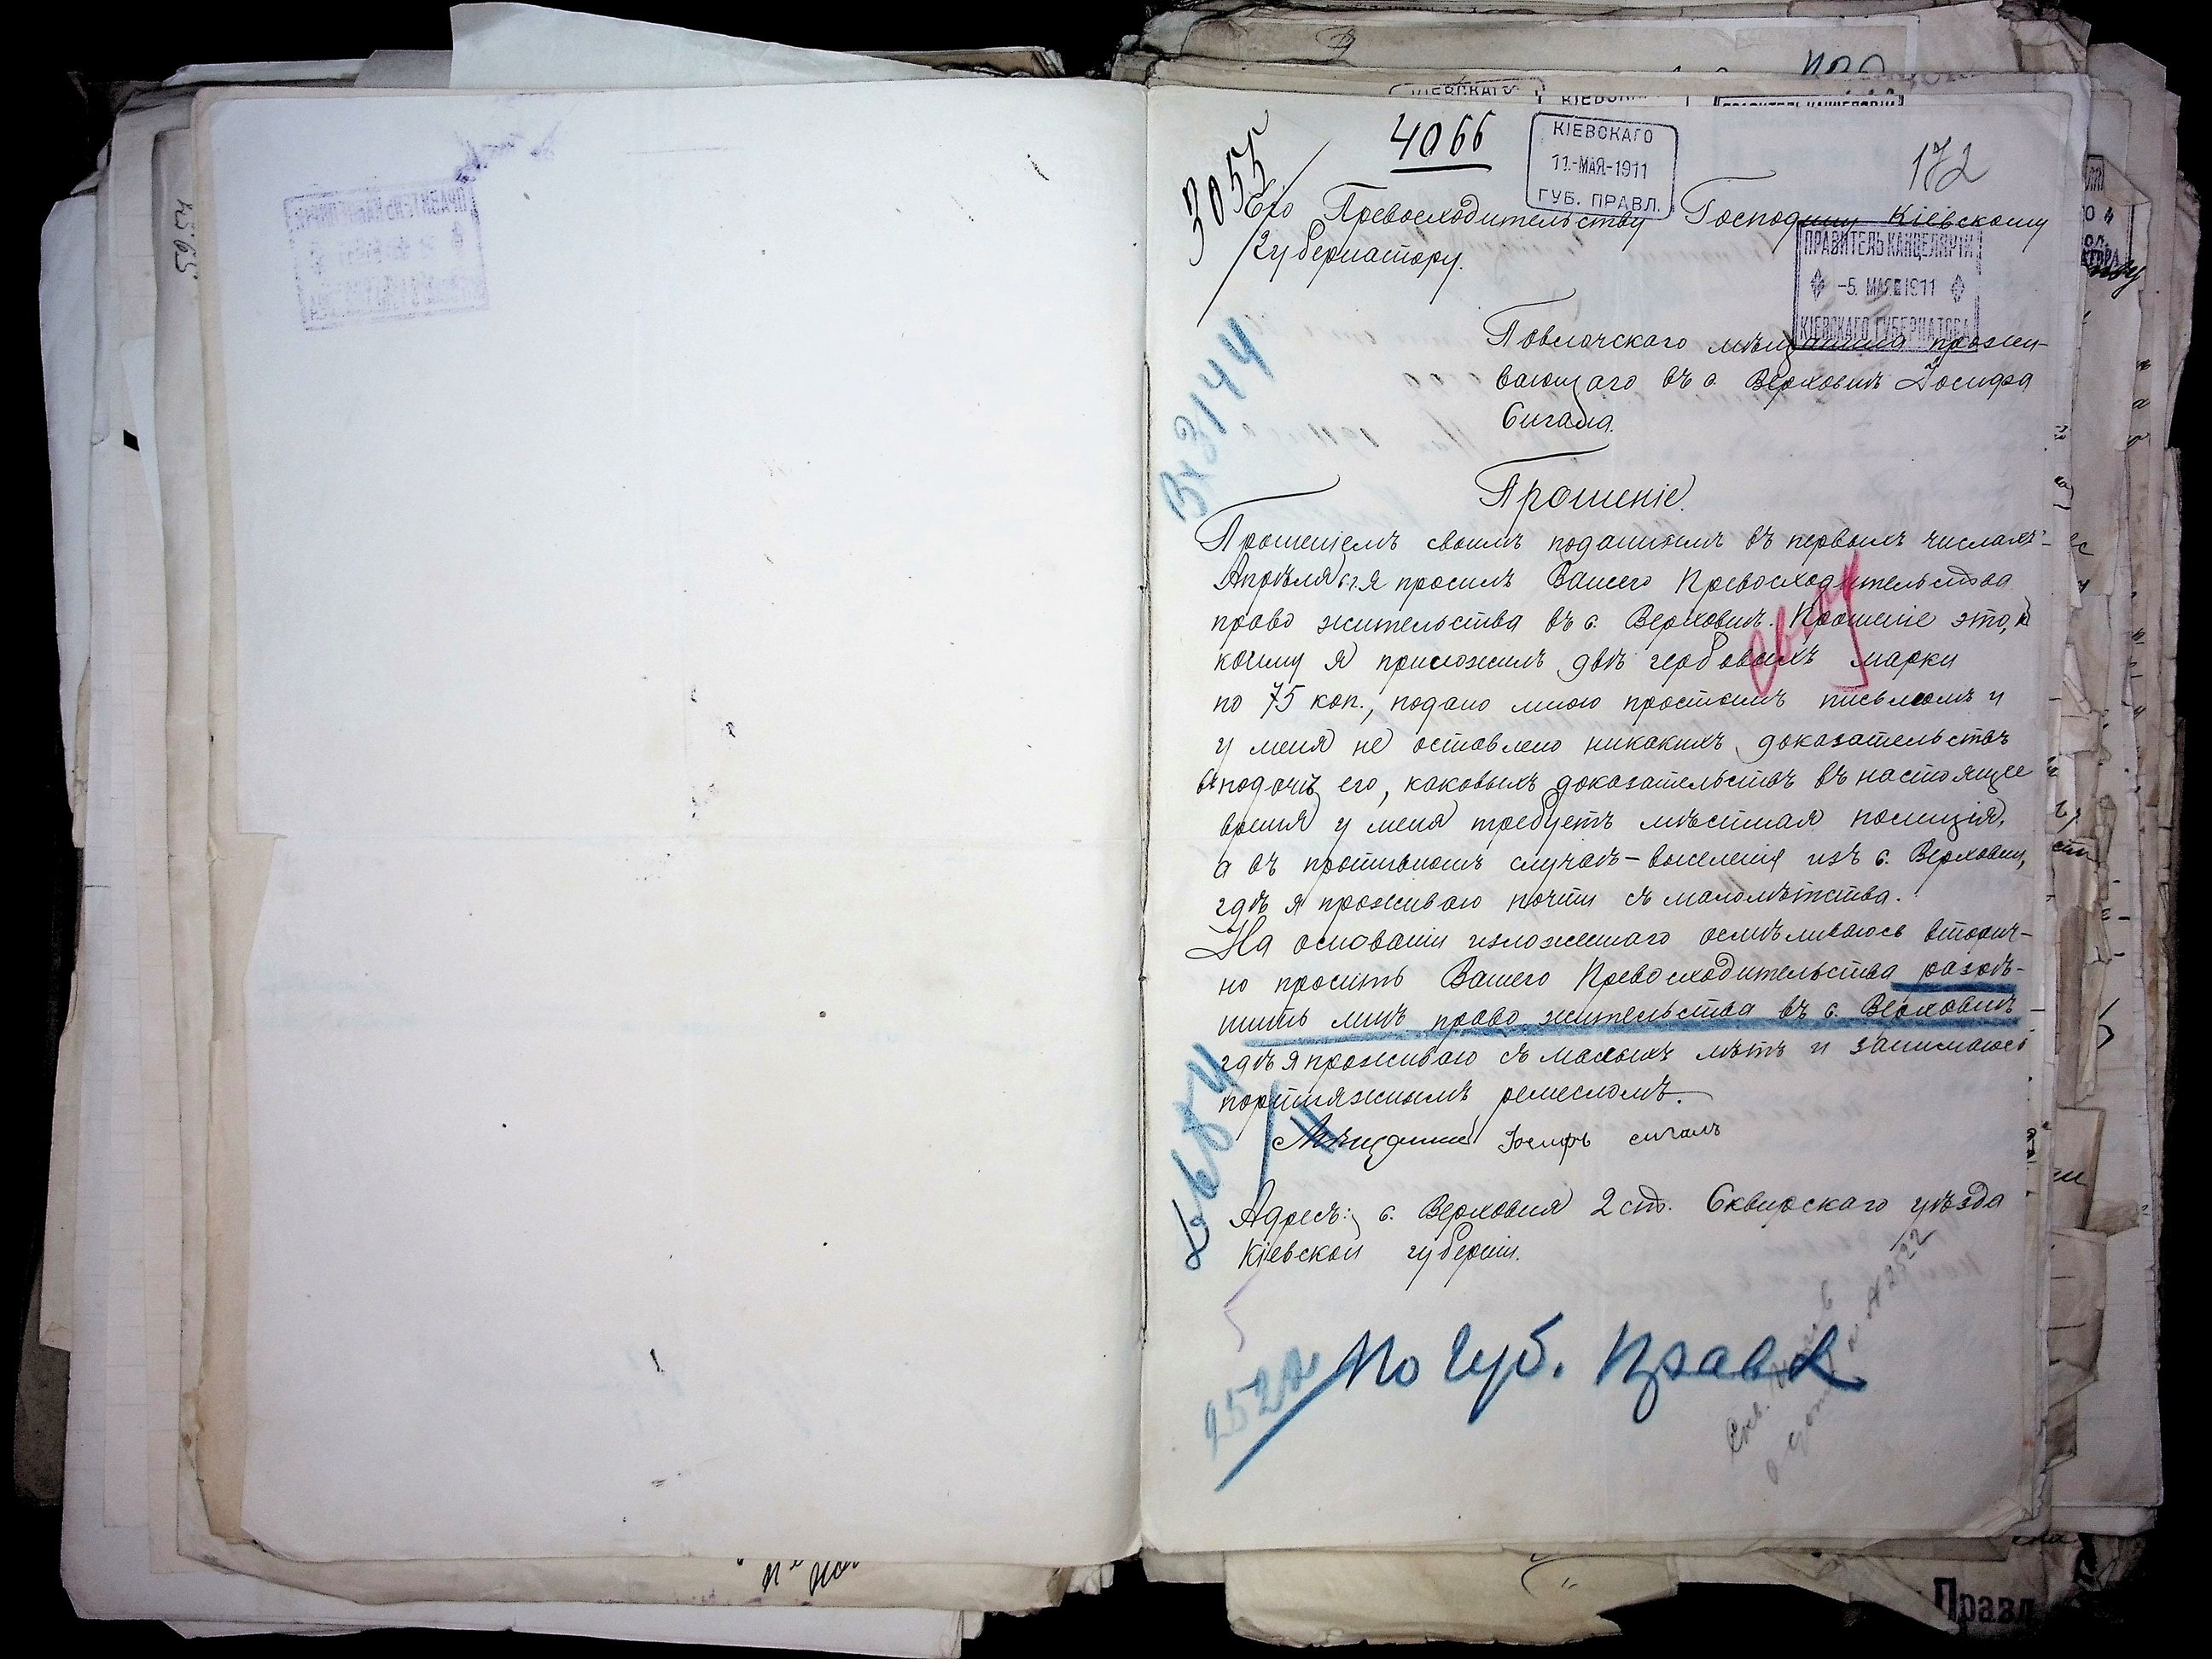 4565
3055
4066
КІЕВСКАГО
11.-МАЯ-1911
ГУБ. ПРАВЛ.
172
Его Превосходительству Господину Кіевскому
Губернатору.
ПРАВИТЕЛЬ КАНЦЕЛЯРІИ
-5. МАЯ 1911
КІЕВСКАГО ГУБЕРНАТОРА
Паволочскаго мѣщанина прожи-
вающаго въ с. Верховнѣ Іосифа
Сигала.
3144
Прошеніе.
Прошеніемъ своимъ поданнымъ въ первыхъ числахъ
Апрѣля с.г. я просилъ Вашего Превосходительства
право жительства въ с. Верховнѣ. Прошеніе это, к
коему я приложилъ двѣ гербовыхъ марки
по 75 коп., подано мною простымъ письмомъ и
у меня не оставлено никакихъ доказательствъ
въ подачѣ его, каковыхъ доказательствъ въ настоящее
время у меня требуетъ мѣстная полиція,
а въ противномъ случаѣ - выселенія изъ с. Верховни,
гдѣ я проживаю почти съ малолѣтства.
На основаніи изложеннаго осмѣливаюсь вторич-
но просить Вашего Превосходительства разрѣ-
шить мнѣ право жительства въ с. Верховнѣ
гдѣ я проживаю съ малыхъ лѣтъ и занимаюсь
портняжнымъ ремесломъ.
Мѣщанинъ Іосифъ сигалъ
Адресъ: с. Верховня 2 ст. Сквирскаго уѣзда
Кіевской губерніи.
По Губ. Правл
2522
№ 2522
Правл